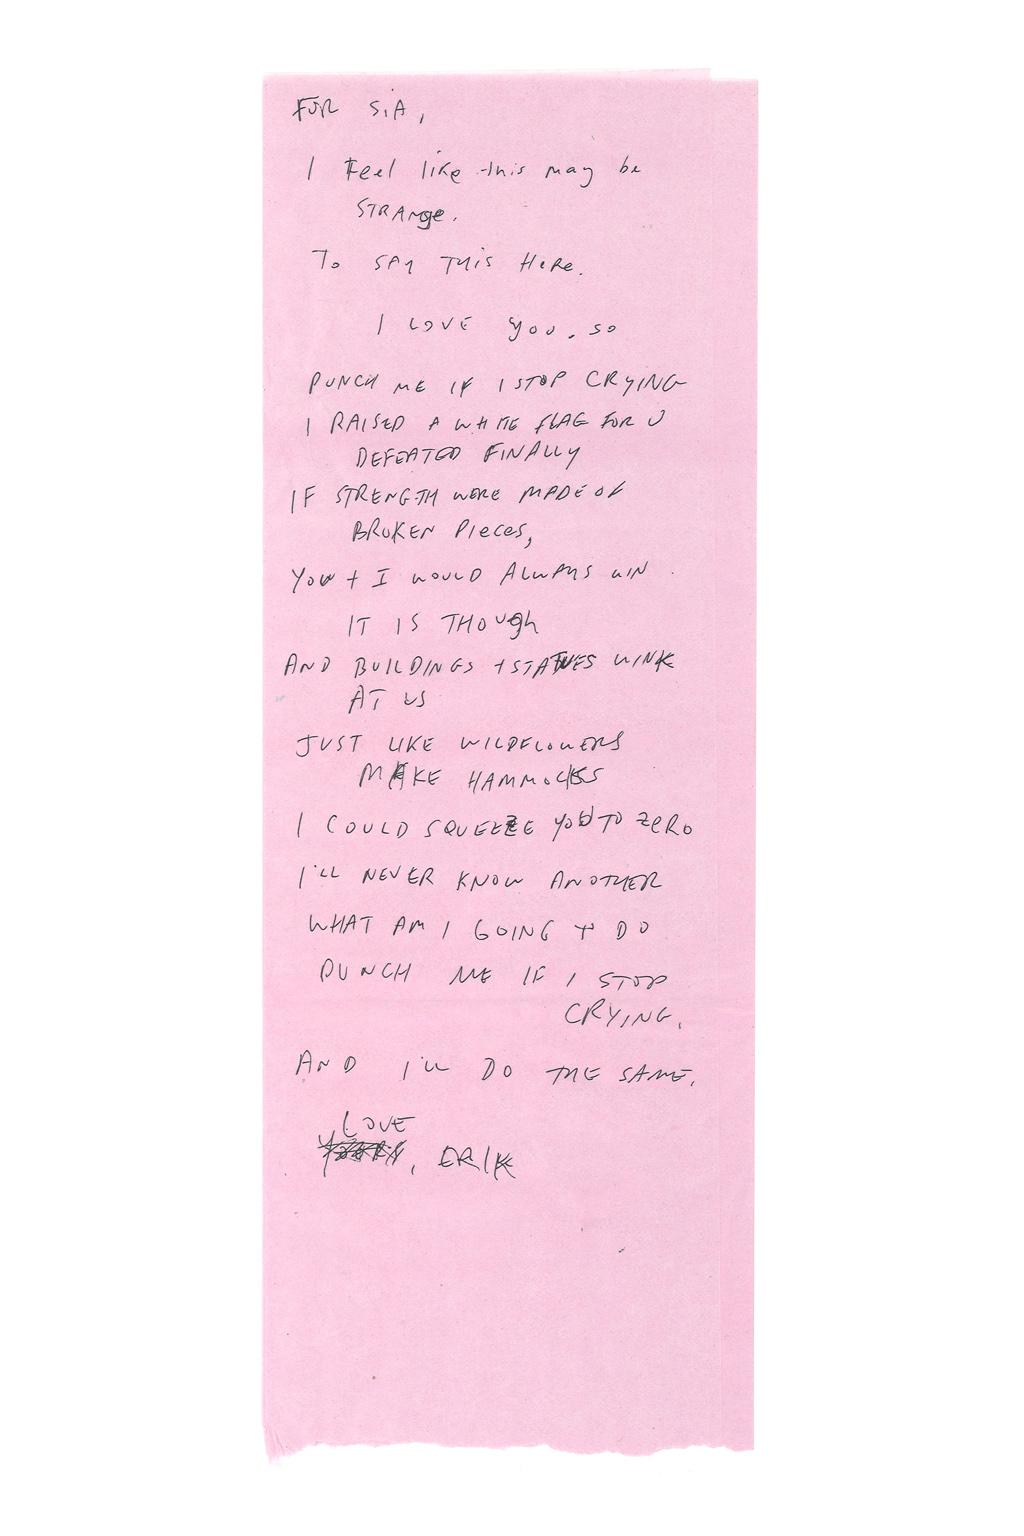 FOR SiA,
I Feel like this may be
STRANge.
To SAY THiS HeRe.
I LOVE you. so
PUNCH ME IF I STOP CRYING
I RAISED A WHITE FLAG FOR U
DEFEATED FINALLY
IF STRENGTH WERE MADE OF
BROKEN PIeces,
YOU + I WOULD ALWAYS WIN
IT IS THOUgh
AND BUILDINGS + STATUES WINK
AT US
JUST LIKE WILDFLOWERS
MAKE HAMMOCKS
I COULD SQUEEZE YOU TO ZeRO
I'LL NEVER KNOW ANOTHER
WHAT AM I GOING T DO
PUNCH ME IF I STOP
CRYING.
AND I'LL DO THE SAME.
LOVE
, ERIK